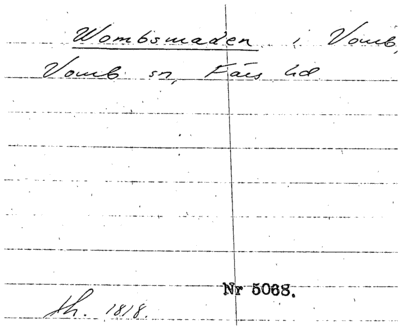 Wombsmaden i Vomb,
Vomb sn, Färs hd
Nr 5068.
Sk. 1818.